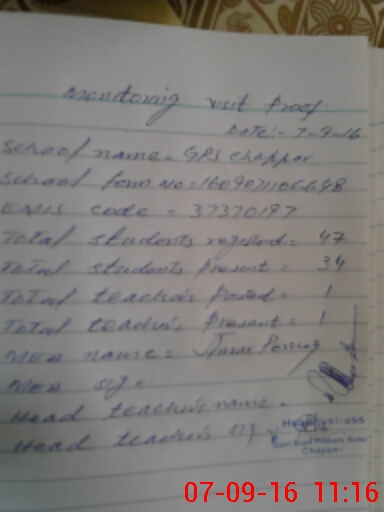 Monitoring visit Proof
Date:- 7-9-16
School name = GPS Chappar
School form No = 
EMIS code = 37370197
Total students registerd = 47
Total students present = 34
Total teacher's Posted = 1
Total teacher's present = 1
MEA name =
MEA sig =
Head teacher's name =
Head teacher's sig =
Headmistress
Govt Girls Primary School
Chappar
07-09-16 11:16